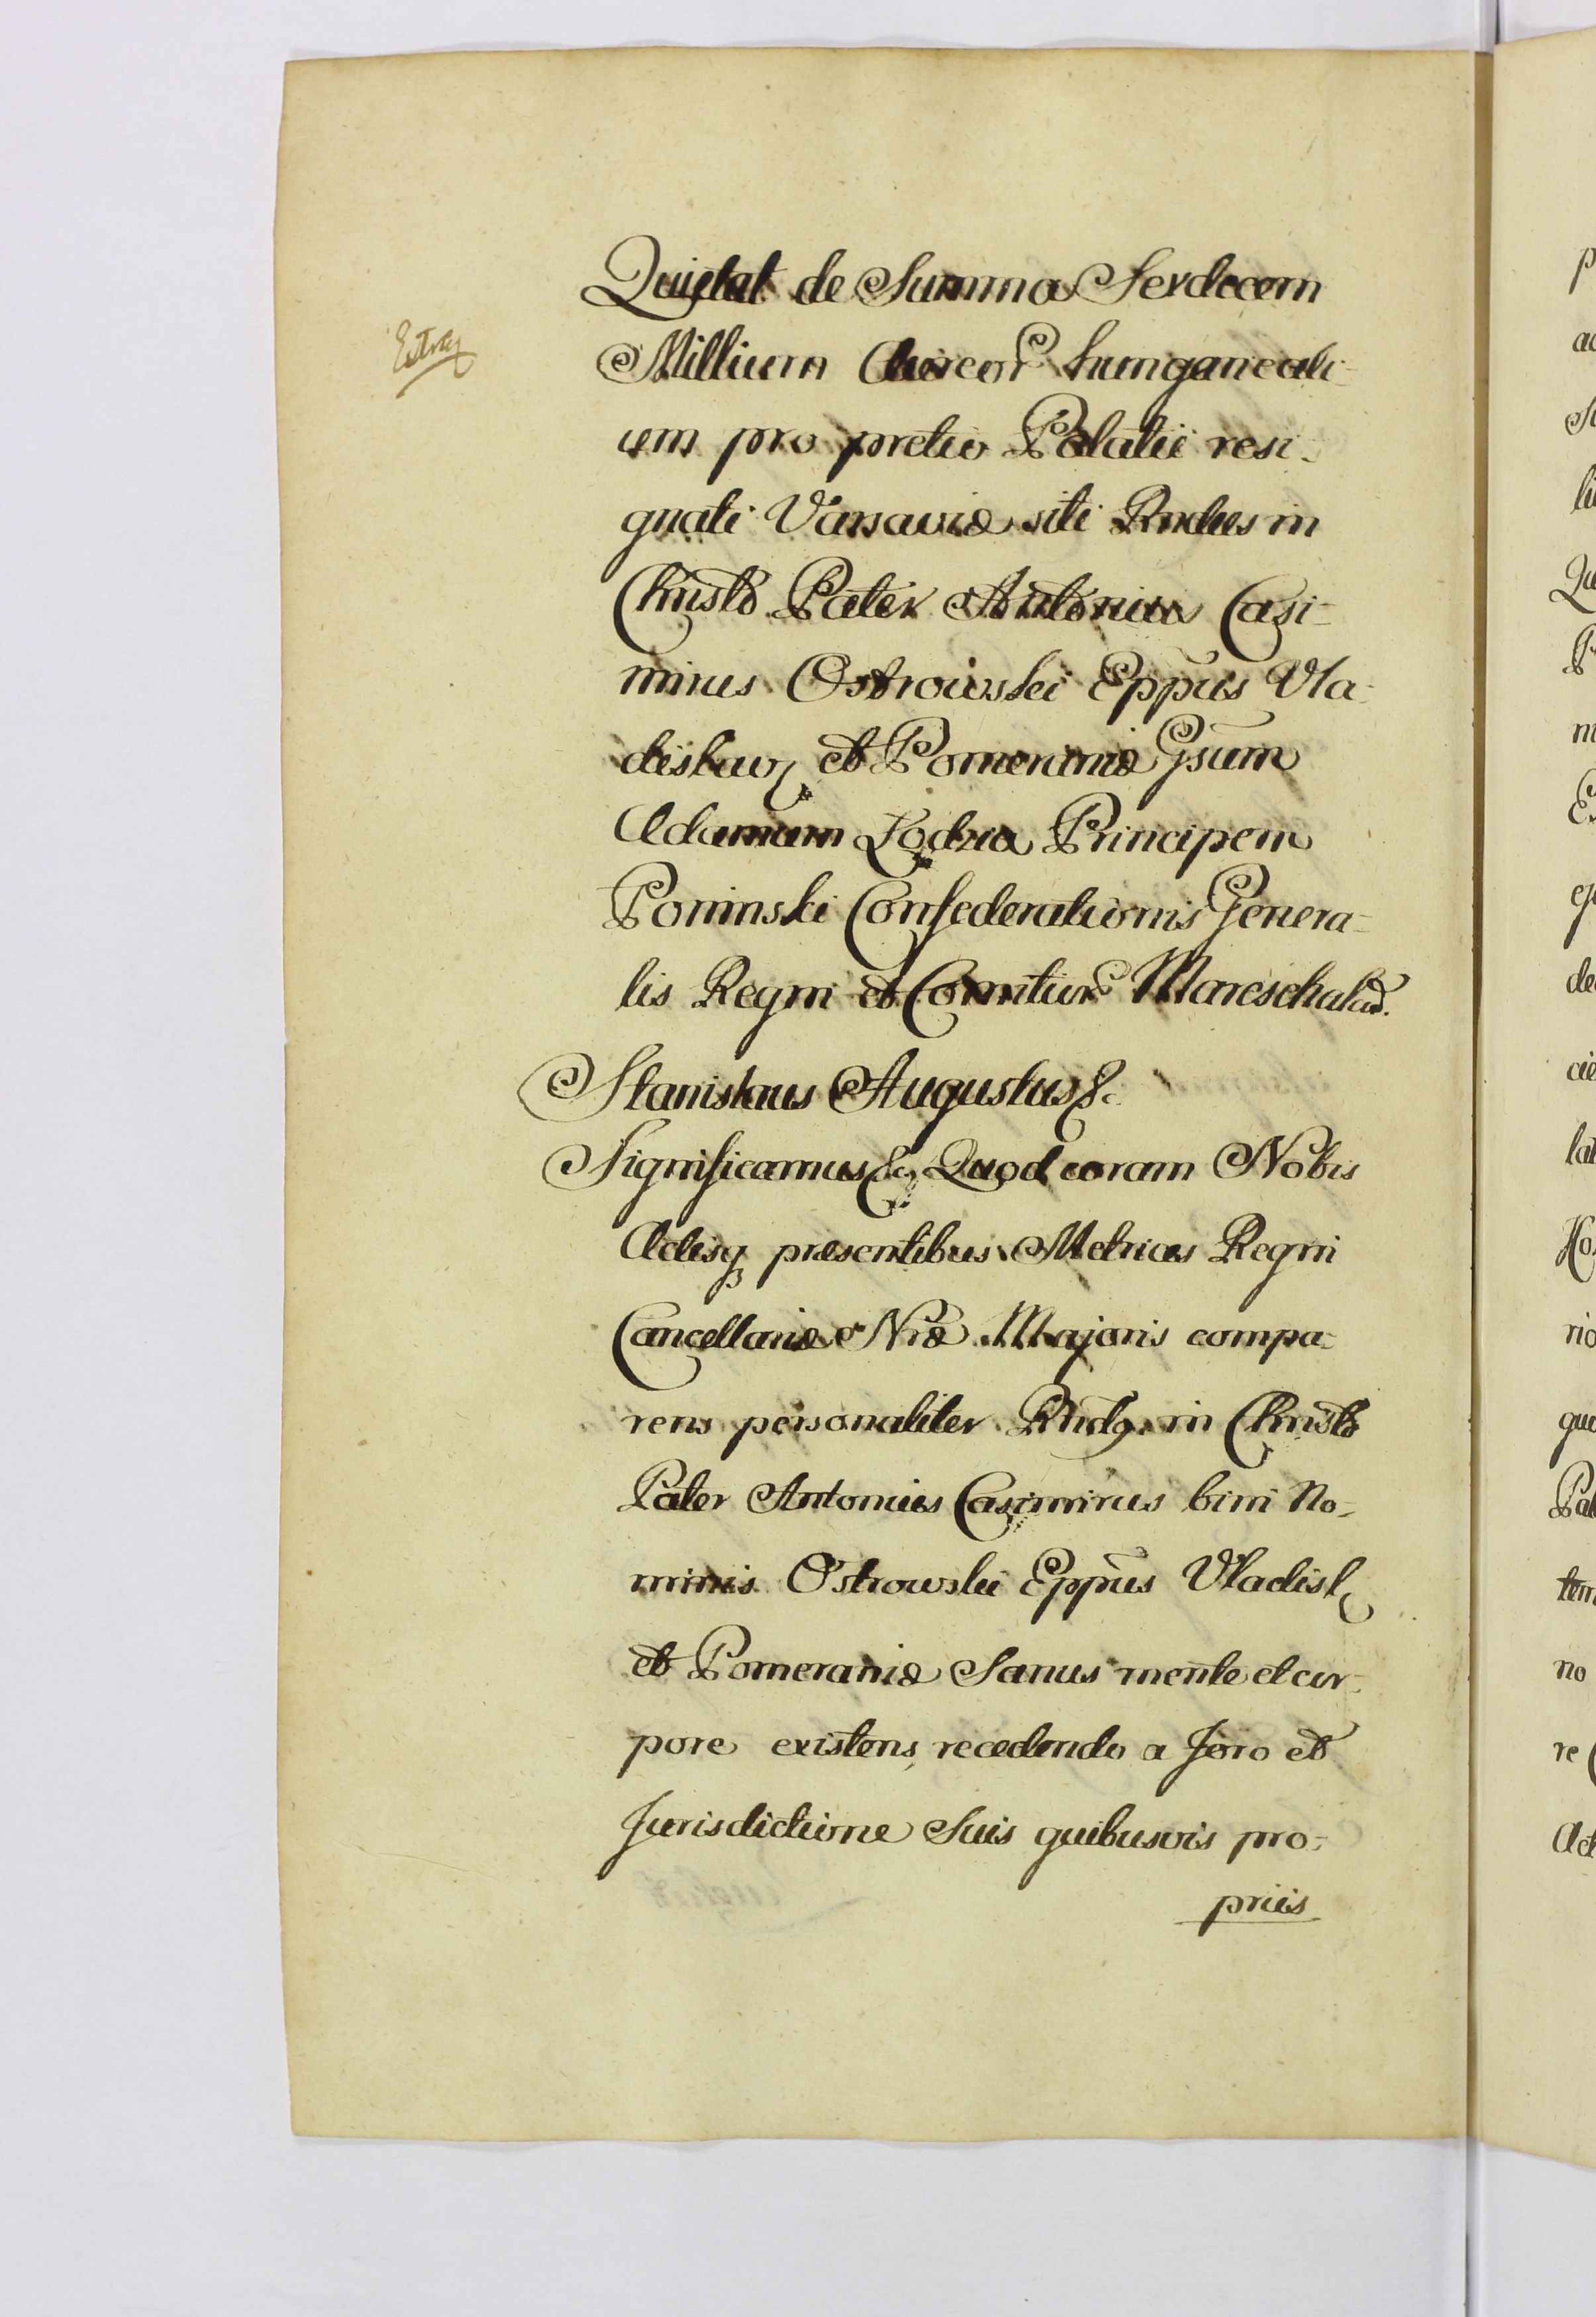 Quietat de Summa Sexdecem
Millium Aureor hungarieali-
um pro pretio Palatii resi-
gnati Varsaviæ siti Rndus in
Christo Pater Antonius Casi-
mirus Ostrowski Eppus Vla-
dislav et Pomeraniæ Gsum
Adamum Lodzia Principem
Poninski Confederationis Genera-
lis Regni et Comitior Mareschalcū.
Stanislaus Augustus &c
Significamus &c Quod coram Nobis
Actisq presentibus Metrices Regni
Cancellariæ Nræ Majoris compa-
rens personaliter Rndus in Christo
Pater Antonius Casimirus bini No-
minis Ostrowski Eppus Vladisl
et Pomeraniæ Sanus mente et cor-
pore existens, recedendo a Foro et
Jurisdictione Suis quibusvis pro-
priis